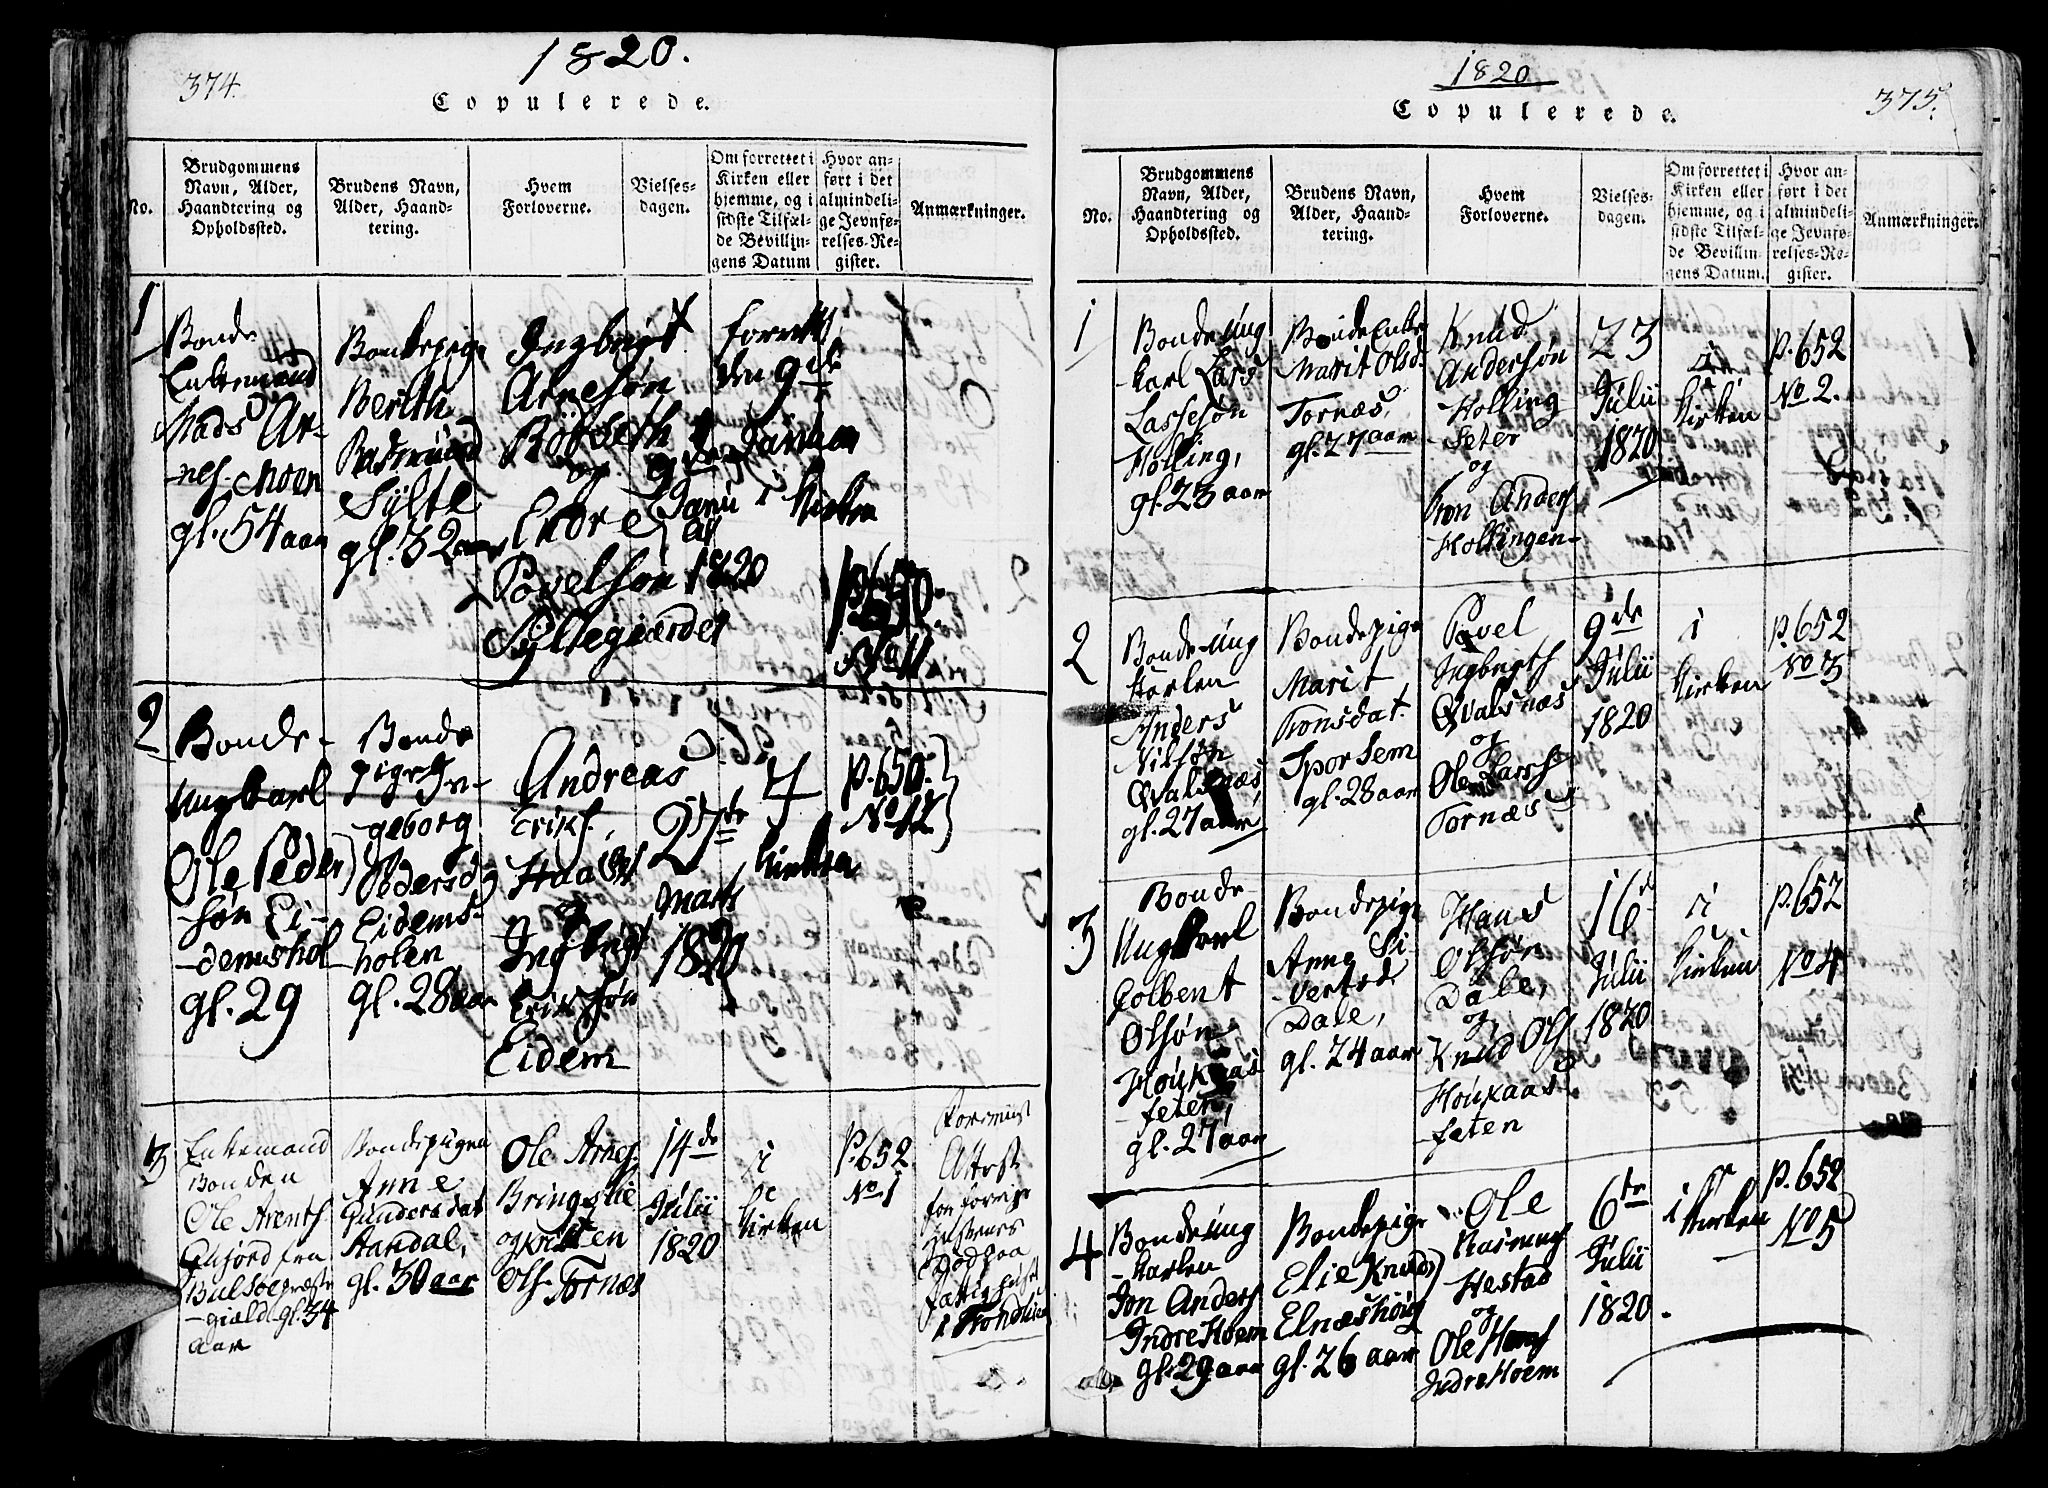 374.
1820.
Copulerede.
No.
Brudgommens
Navn, Alder,
Haandtering og
Opholdssted.
Brudens Navn,
Alder, Haand-
tering.
Hvem
Forloverne.
Vielses-
dagen.
Om forrettet i
Kirken eller
hjemme, og i
sidste Tilfæl-
de Bevillin-
gens Datum
Hvor an-
ført i det
almindeli-
ge Jevnfø-
relses-Re-
gister.
Anmærkninger.
1
Bonde
Enkemand
Mads Ar-
nes. Moen
gl. 54 aar
Bondepige
Berith
Rasmusd
Sylte
gl. 32 aar
Ingbrigt
Arnesøn
Bødseth
og
Endre
Povelsøn
Syltegiærdet
9de
Janu
ar
1820
forrett
den 9de
Januar
i Kirken
p. 650.
No 11
2
Bonde-
Ungkarl
Ole Peder
søn Ei-
demshol
gl. 29
Bonde
pige In-
geborg
Pedersd
Eidems-
holen
gl. 28 aar
Andreas
Eriks.
Haas
og
Ingbrigt
Eriksøn
Eidem
27de
Marts
1820
i
Kirken
p. 650.
No 12
3
Enkemand
Bonden
Ole Arents.
fra
Bolsøe præste
-giæld gl. 34
aar
Bondepigen
Anne
Gundersdat
Aandal,
gl. 30 aar
Ole Arnes.
Bringslie
og Kristen
Ols. Tornæs
14de
Julii
1820
i
Kirken
P. 652.
No 1
Attest
for forrige
Hustrues
Død paa
i Trondhiem
1820
Copulerede.
375.
No.
Brudgommens
Navn, Alder,
Haandtering og
Opholdssted.
Brudens Navn,
Alder, Haand-
tering.
Hvem
Forloverne.
Vielses-
dagen.
Om forrettet i
Kirken eller
hjemme, og i
sidste Tilfæl-
de Bevillin-
gens Datum.
Hvor an-
ført i det
almindeli-
ge Jevnfø-
relses-Re-
gister.
Anmærkninger.
1
Bonde Ung
-karl Lars
Lassesøn
Holling,
gl. 23 aar
Bonde Enke
Marit Olsd.
Tornæs,
gl. 27 aar
Knud
Andersøn
Holling
-Seter
og
Jon Anders
Hollingen-
23
Julii
1820
i
Kirken
p. 652
No 2.
2
Bonde Ung
Karlen
Anders
Nilsøn
Qvalsnæs,
gl. 27 aar
Bondepige
Marit
Jonsdat.
Sporsem
gl. 28 aar
Povel
Ingbrigts
Qvalsnæs
og
Ole Larss
Tornæs
9de
Julii
1820
i
Kirken
p. 652
No 3
3
Bonde
Ungkarl
Colbent
Olsøn
Houkaas
seten,
gl. 27 aar
Bondepige
Anne Si
-vertsd
Dale,
gl. 24 aar
Hans
Olsøn
Dale,
og
Knud Ols
Houkaas
-seten
16d
Julii
1820
i
Kirken
p. 652
No 4
4
Bonde Ung
-karlen
Jon Anders
Indre Hoem
gl. 29 aar
Bondepige
Elie Knuds
Elnæshøug
gl. 26 aar
Ole
Rasmus
Hestad
og
Ole Hans
Indre Hoem
6te
Julii
1820.
i Kirken
p. 652
No 5